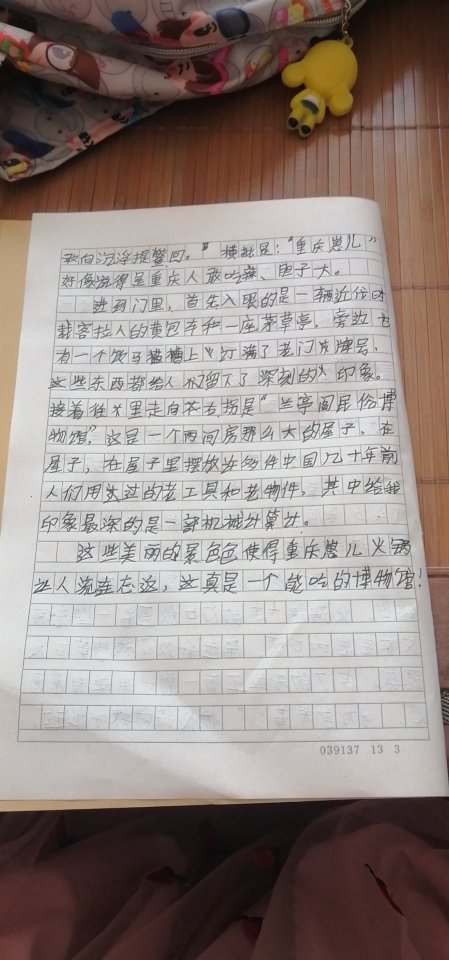 敢向沉浮提警回。” 横批是：“重庆崽儿”
好像说得是重庆人敢吃麻、胆子大。
进到门里，首先入眼的是一辆近代时
载客拉人的黄包车和一座茅草亭，旁边
有一个饲马槽上 钉满了老门房牌号，
这些东西都给人们留下了深刻的 印象。
接着往 里走向 右拐是“兰亭阁民俗博
物馆”，这是一个两间房那么大的屋子，在
屋子，在屋子里摆放 多件中国几十年前
人们用 过的老工具和老物件，其中给我
印象最深的是一部机械计算 。
这些美丽的景色色使得重庆崽儿火锅
让人流连忘返，这真是一个能吃的博物馆！
039137 13 3